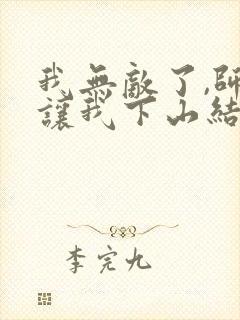 我無敵了,師
讓我下山結
李完九